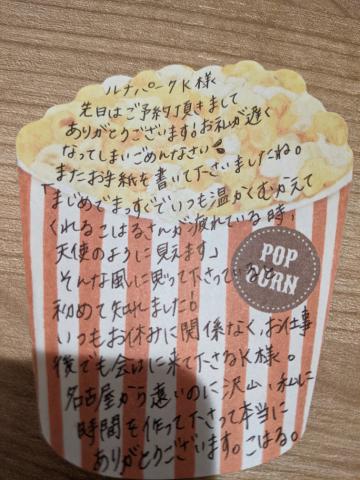 ルナパークK様
先日はご予約頂きまして
ありがとうございます!お礼が遅く
なってしまいごめんなさい
またお手紙を書いて下さいましたね。
「まじめでまっすぐでいつも温かくむかえて
くれるこはるさんが疲れている時、
天使のように見えます」
そんな風に思って下さっていると
初めて知れました!
いつもお休みに関係なく、お仕事
後でも会いに来て下さるK様。
名古屋から遠いのに沢山、私に
時間を作って下さって本当に
ありがとうございます。こはる。
POP
CORN